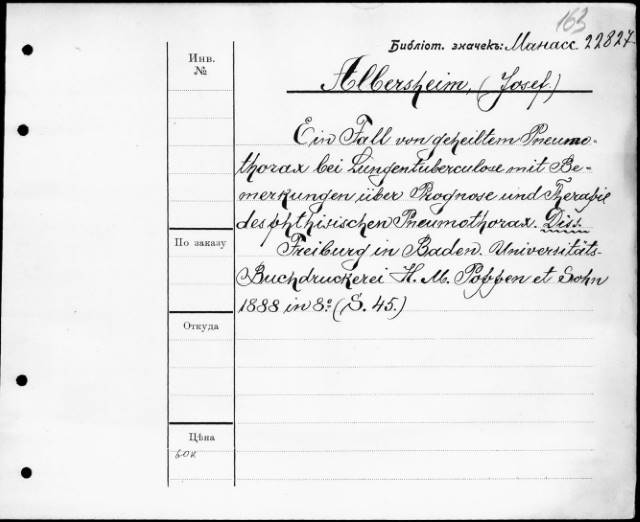 163
Библіот. значекъ: Манасс. 22827
Инв.
№
Albersheim, (Josef.)
Ein Fall von geheiltem Pneumo-
thorax bei Lungentuberculose mit Be-
merkungen über Prognose und Therapie
des phthisischen Pneumothorax. Diss.
По заказу
Freiburg in Baden. Universitäts-
Buchdruckerei H. M. Poppen et Sohn
1888 in 8º (S. 45.)
Откуда
Цѣна
60к